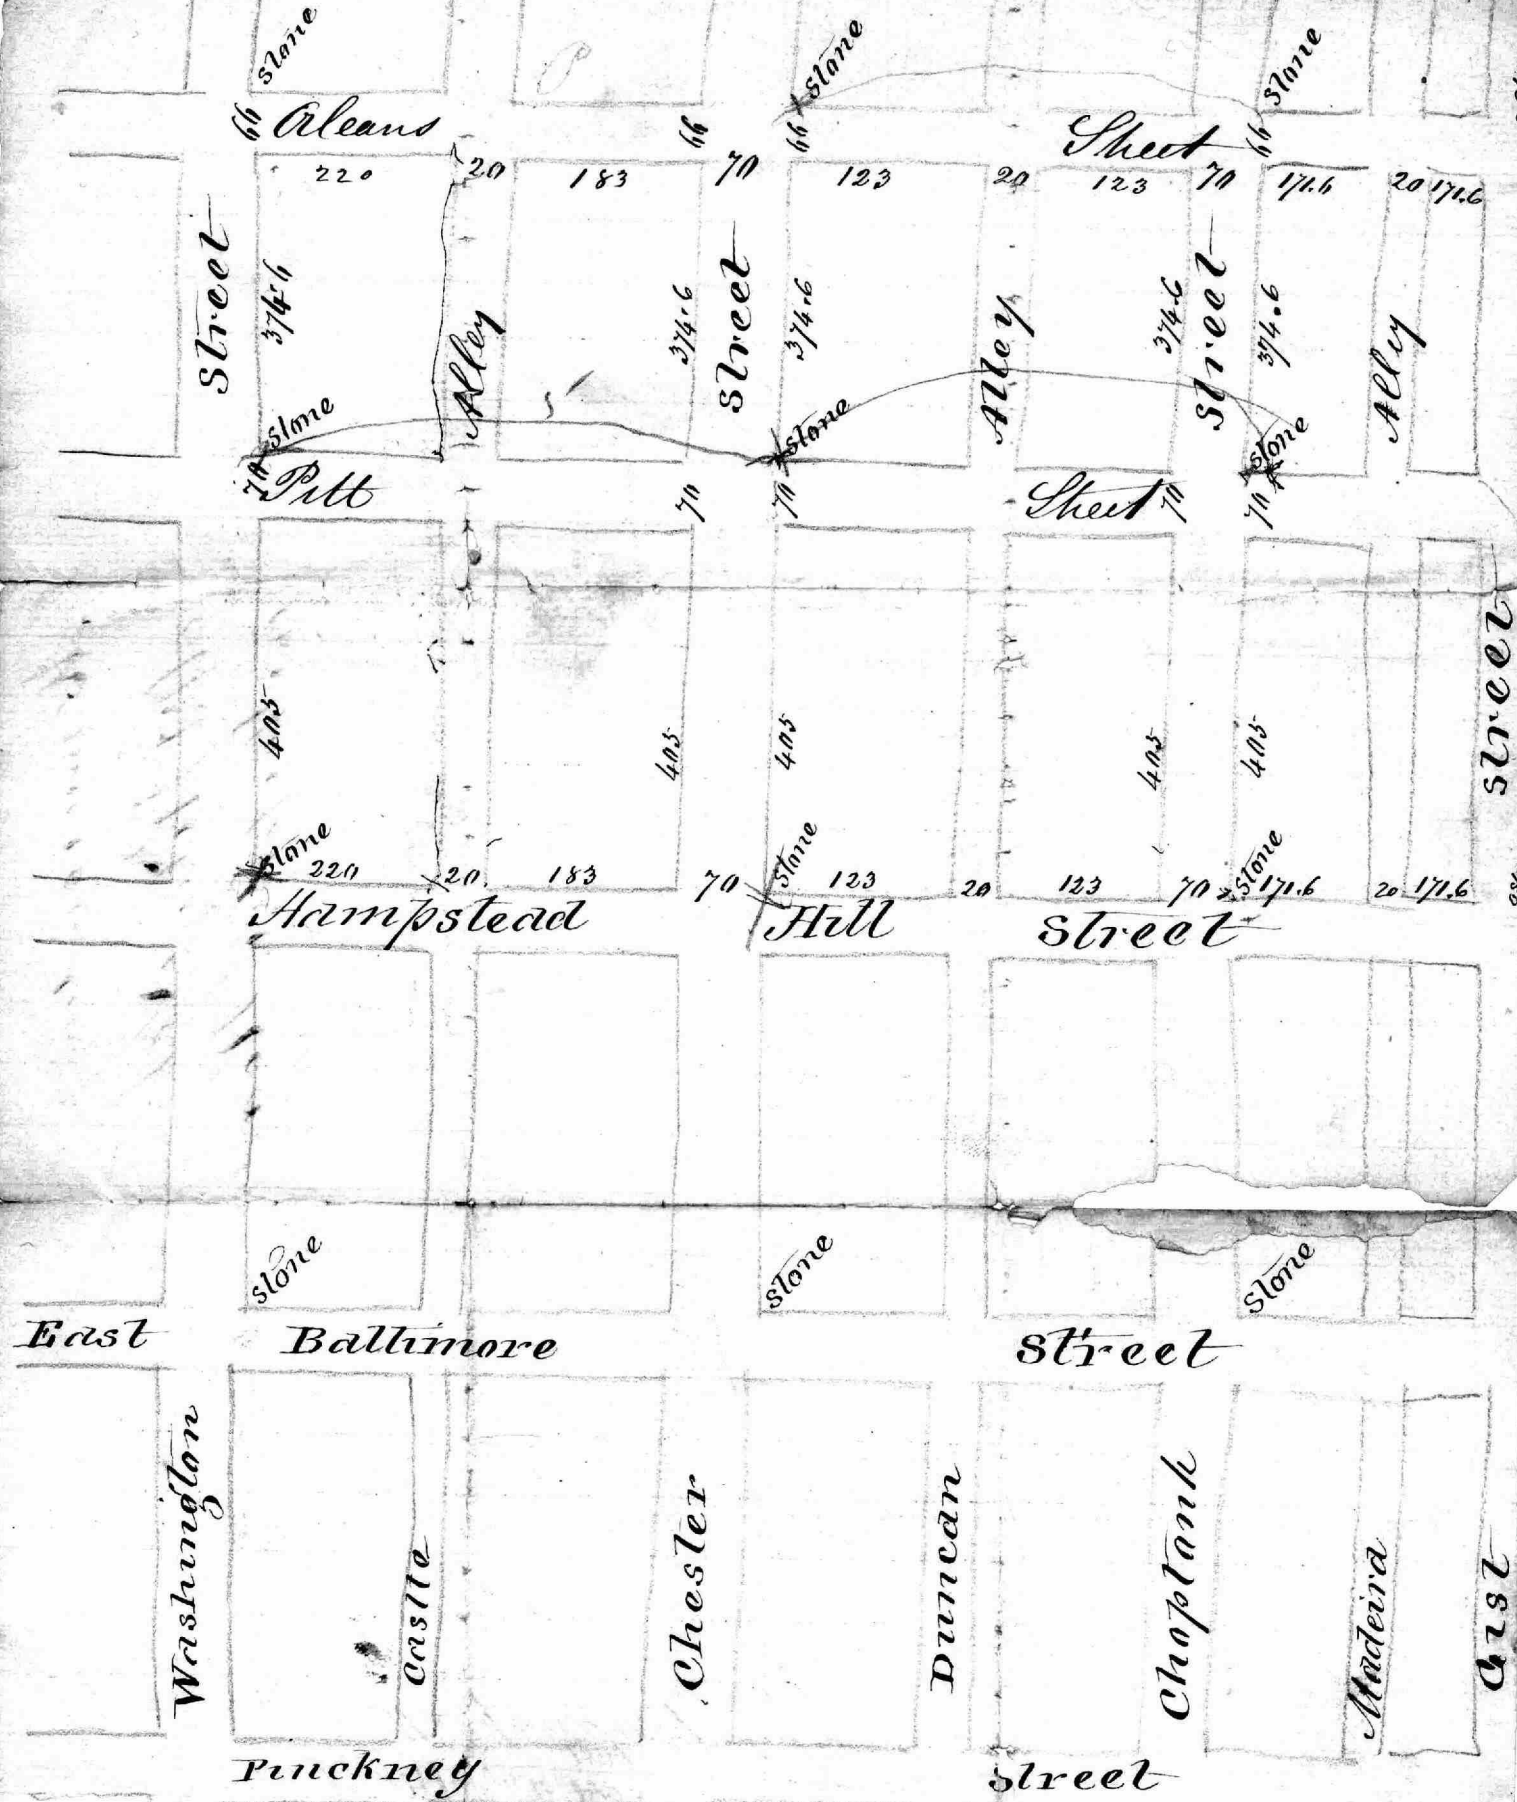 stone stone stone
66 Oleans 66 66 Street 66
220 20 183 70 123 20 123 70 171.6 20 171.6
Street 374.6 Alley 374.6 Street 374.6 Alley 374.6 Street 374.6 Alley
stone stone stone
70 Pitt 70 70 Street 70 70
405 405 405 405 405 Street
stone 220 20 183 70 stone 123 20 123 70 stone 171.6 20 171.6
Hampstead Hill Street
stone stone stone
East Baltimore Street
Washington Castle Chester Duncan Choptank Madeira Gist
Pinckney Street